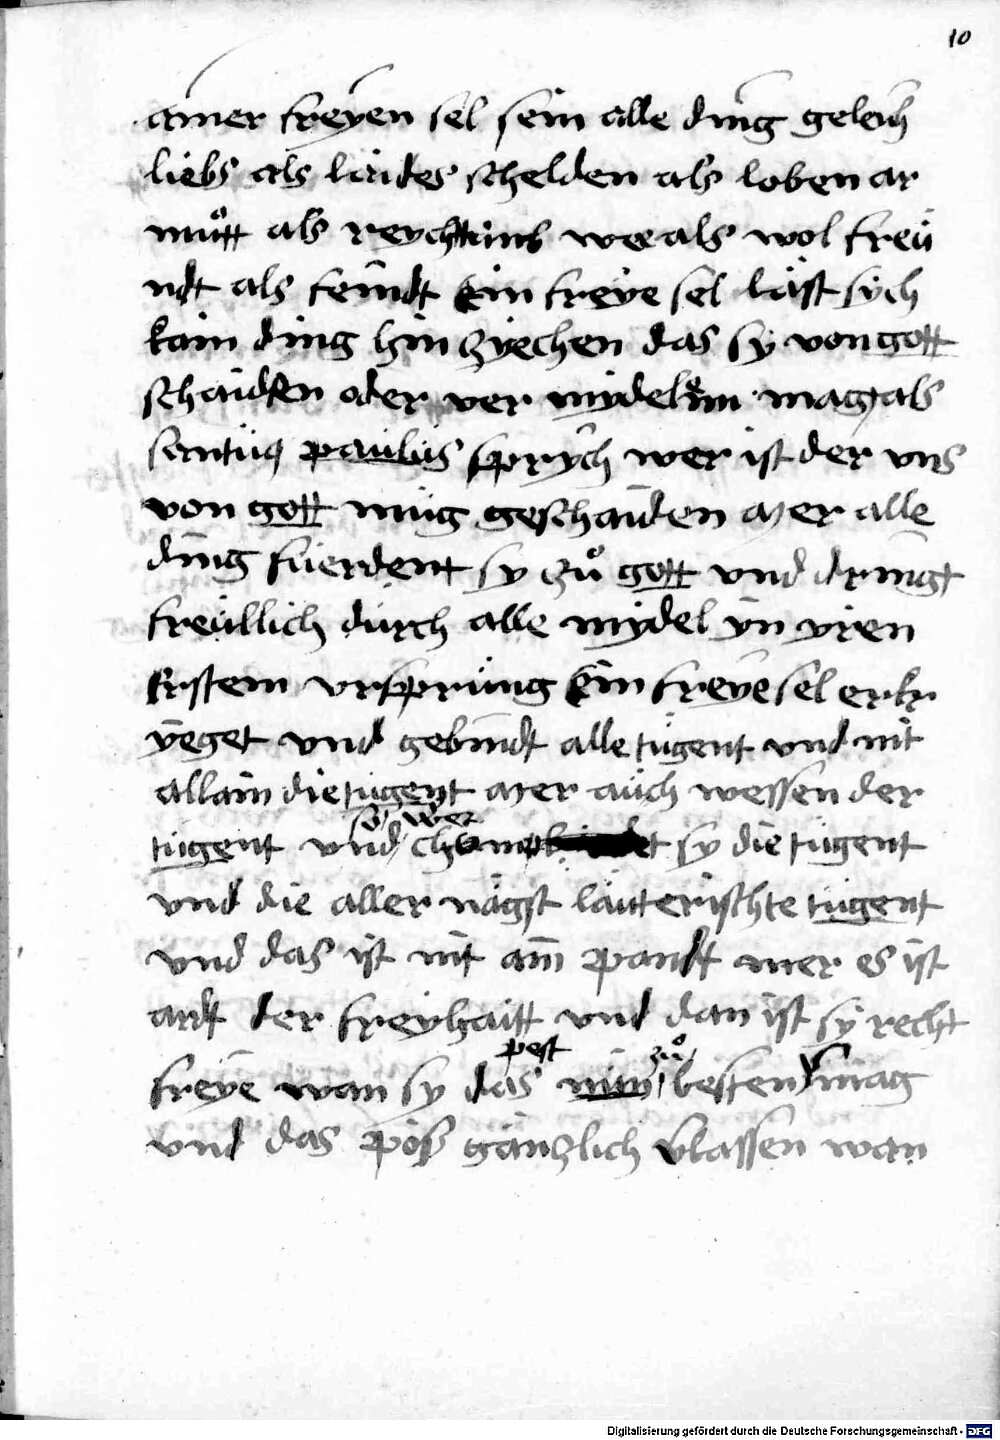 10
amer freyen sel sein alle ding geleich
liebs als laides schelden als loben ar
mu̐tt als reychtumb wee als wol freu
ndt als feindt Ein freye sel läst sych
kain ding hin zyechen das sy von gott
schaiden oder ver mydelnn mag als
santtus paulus sprych wer ist der vns
von gott müg geschaiden aver alle
ding fuerdent sy zů gott vnd dringt
freüllich durch alle mydel yn yren
Erstem vrsprüng Ein freye sel erkr
yeget vnd gebindt alle tugent vnd nit
allain die tugent aver auch wessen der
so wer
tugent vnd sy die tügent
vnd die aller nägst läuterischte tugent
vnd das ist nit am pandt mer es ist
ardt der freyhaitt vnd dan ist sy recht
pest zů
freye wan sy das besten mag
vnd das pöß gänzlich vlassen wan
Digitalisierung gefördert durch die Deutsche Forschungsgemeinschaft - DFG